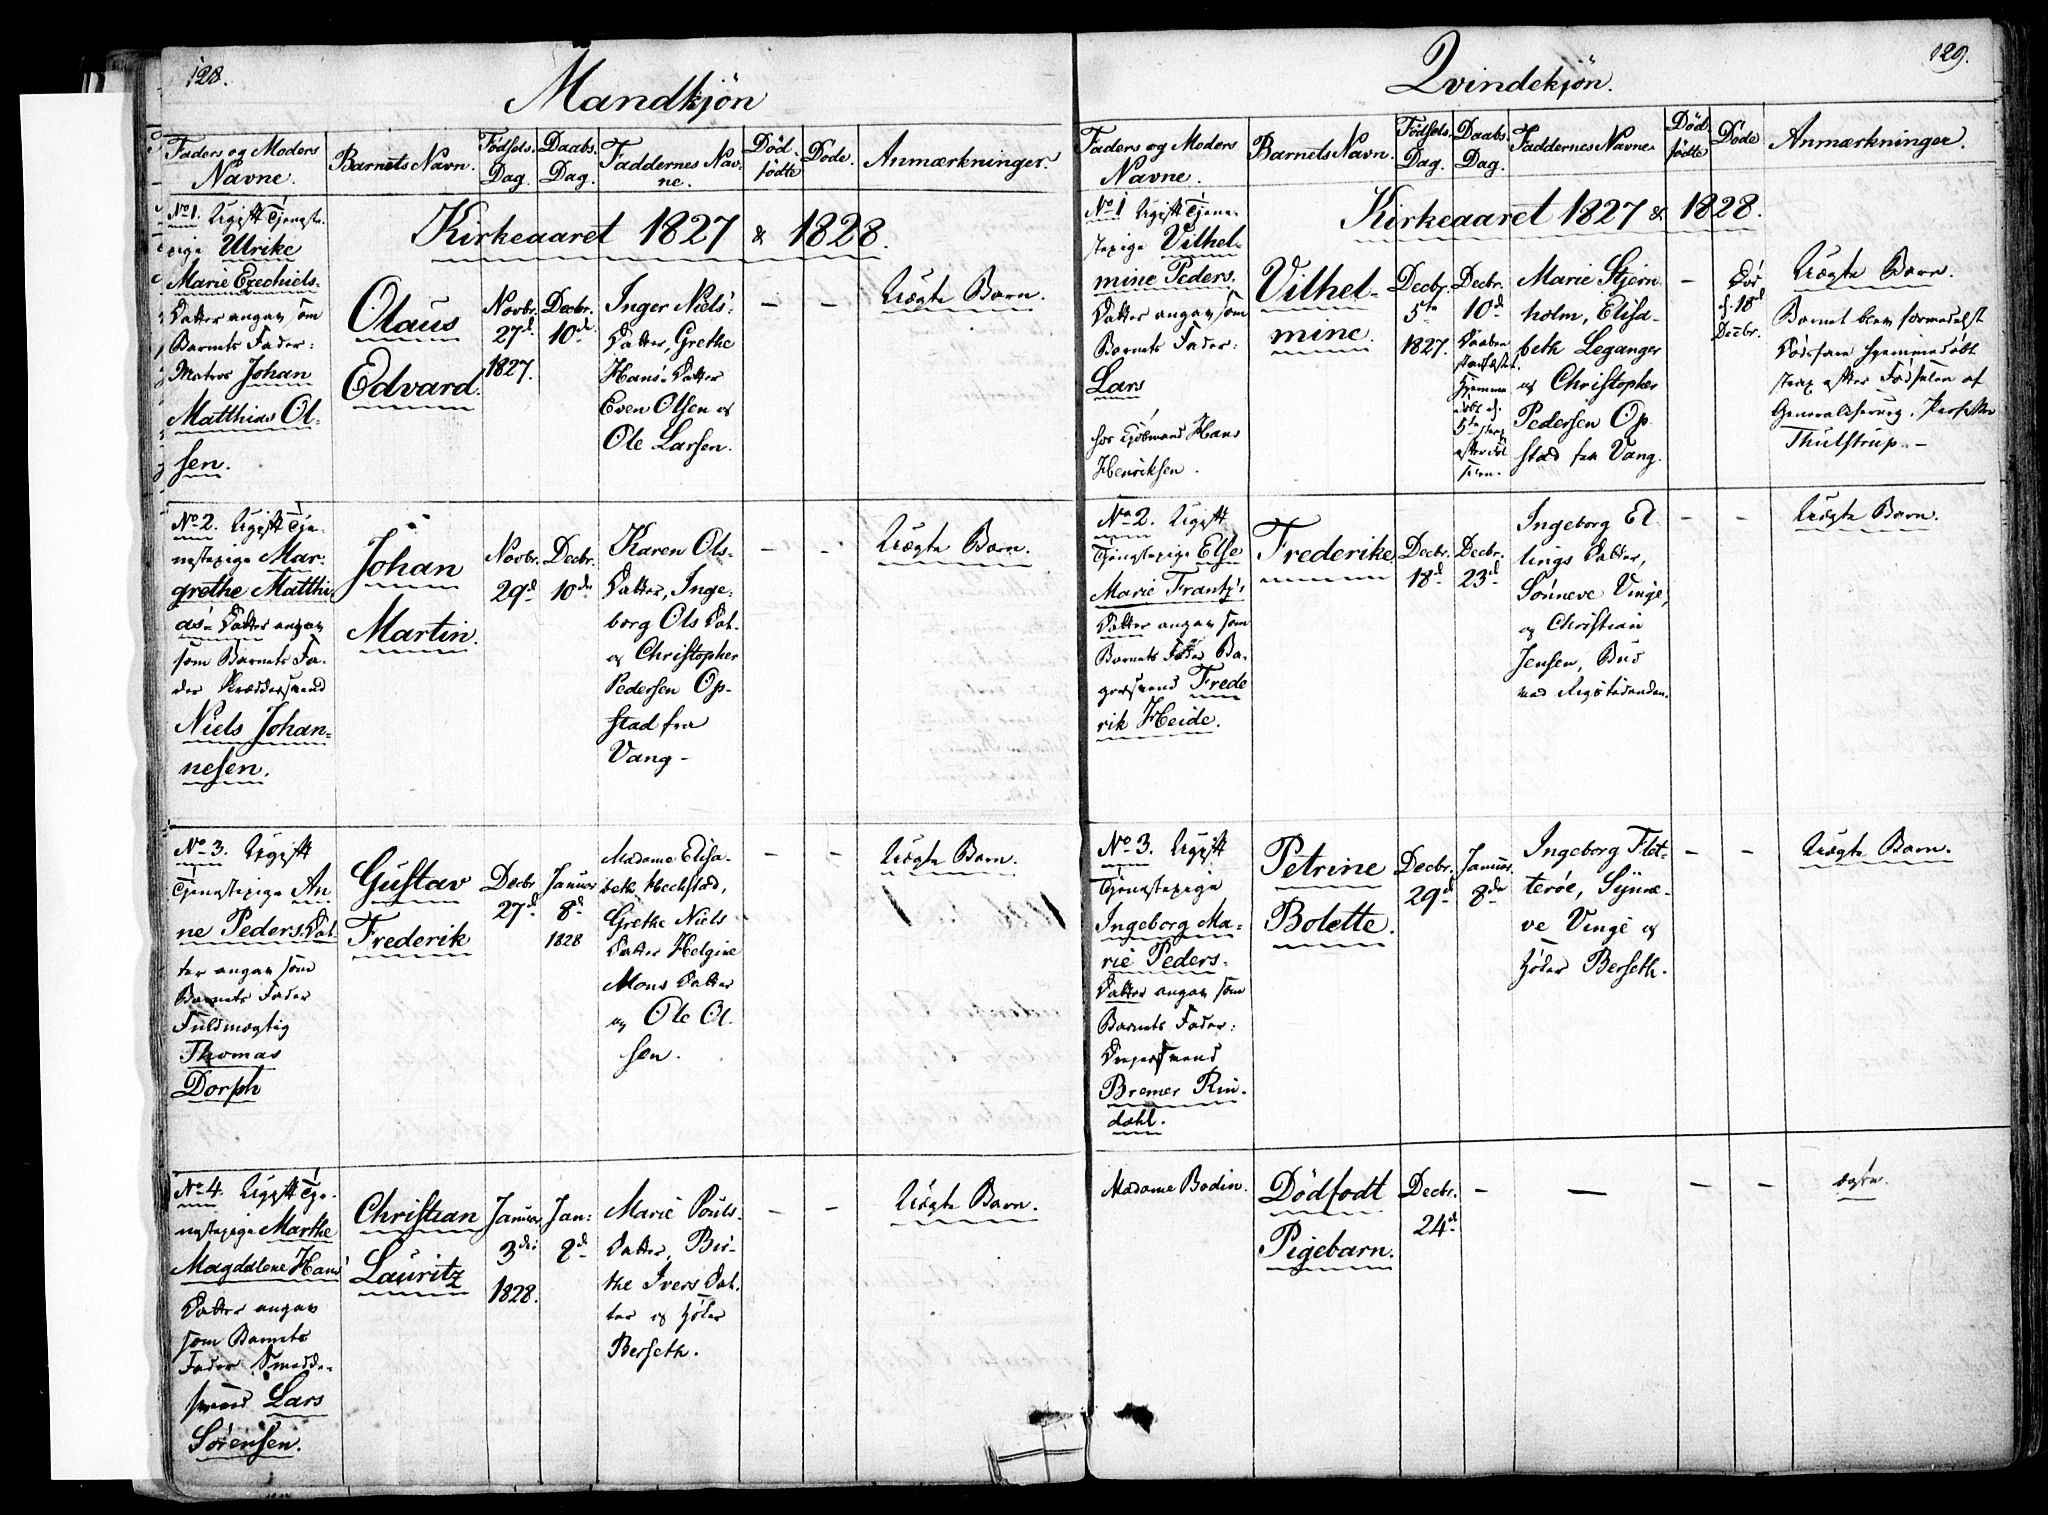 128.
Mandkjön
Faders og Moders Navne.
Barnets Navn.
Födsels. Dag.
Daabs. Dag.
Faddernes Nav-
ne.
Död.
födte
Döde.
Anmærkninger.
Kirkeaaret 1827 & 1828.
No 1. Ugift Tjenste-
pige Ulrike
Marie Ezechiels-
Datter angav som
Barnets Fader:
Matros Johan
Matthias Ol-
sen.
Olaus
Edvard.
Novbr.
27d
1827.
Decbr.
10de
Inger Niels-
Datter, Grethe
Hans-Datter
Even Olsen og
Ole Larsen.
— —
Uægte Barn.
No 2. Ugift Tje-
nestepige Mar-
grethe Matthi-
as- Datter angav
som Barnets Fa-
der Skræddersvend
Niels Johan-
nesen.
Johan
Martin.
Novbr.
29d
Decbr.
10de
Karen Ols-
Datter, Inge-
borg Ols Dat-
og Christopher
Pedersen Op-
stad fra
Vang -
— -
Uægte Barn.
No 3. Ugift
Tjenestepige An-
ne Peders Dat-
ter angav som
Barnets Fader
Fuldmægtig
Thomas
Dorph
Gustav
Frederik
Decbr
27d
Januar
8d
1828
Madame Elisa-
beth Hechstad,
Grethe Niels
Datter Helgine
Mons Datter
og Ole Ol-
sen.
— —
Uægte Barn.
No 4. Ugift Tje-
nestepige Marthe
Magdalene Hans
Datter angav
som Barnets
Fader Smedde-
svend Lars
Sörensen.
Christian
Lauritz
Januar
3die
1828.
Jan:
8d
Marie Pouls-
Datter, Bir-
the Ivers Dat-
ter og Peder
Berseth.
— —
Uægte Barn.
129.
Qvindekjön.
Faders og Moders
Navne.
Barnets Navn.
Födsels.
Dag.
Daabs.
Dag.
Faddernes Navne
Död
födte
Döde
Anmærkninger.
Kirkeaaret 1827 & 1828.
No 1 Ugift Tjene-
stepige Vilhel-
mine Peders.
Datter angav som
Barnets Fader:
Lars
hos Kjöbmand Hans
Henriksen.
Vilhel-
mine.
Decbr.
5te
1827.
Decbr.
10d
Daaben
stadfæstet.
Hjemme
döbt d.
5te strax
efter Föd
selen.
Marie Stjern
holm, Elisa-
beth Leganger
og Christopher
Pedersen Op
stad fra Vang.
—
Död
d. 18d
Decbr.
Uægte Barn.
Barnet blev formedelst
Dödsfare hjemmedöbt
strax efter Födselen af
Generalchirurg. Professor
Thulstrup.—
No 2. Ugift
Tjenestepige Else
Marie Frantz's
Datter angav som
Barnets Fader Ba-
gersvend Frede
rik Heide.
Frederike
Decbr.
18d
Decbr.
23d
Ingeborg El-
lings Datter,
Sönneve Vinge,
og Christian
Jensen, Bud
ved Rigstidenden.
— -
Uægte Barn.
No 3. Ugift
Tjenestepige
Ingeborg Ma-
rie Peders-
Datter angav som
Barnets Fader:
Bremer Rin-
dahl.
Petrine
Bolette.
Decbr.
29d
Januar.
8de
Ingeborg Flöt-
teröe, Synne-
ve Vinge og
Peder Berseth.
— —
Uægte Barn.
Madame Bodin.
Dödfödt
Pigebarn.
Decbr.
24d
— — — —
ægte.